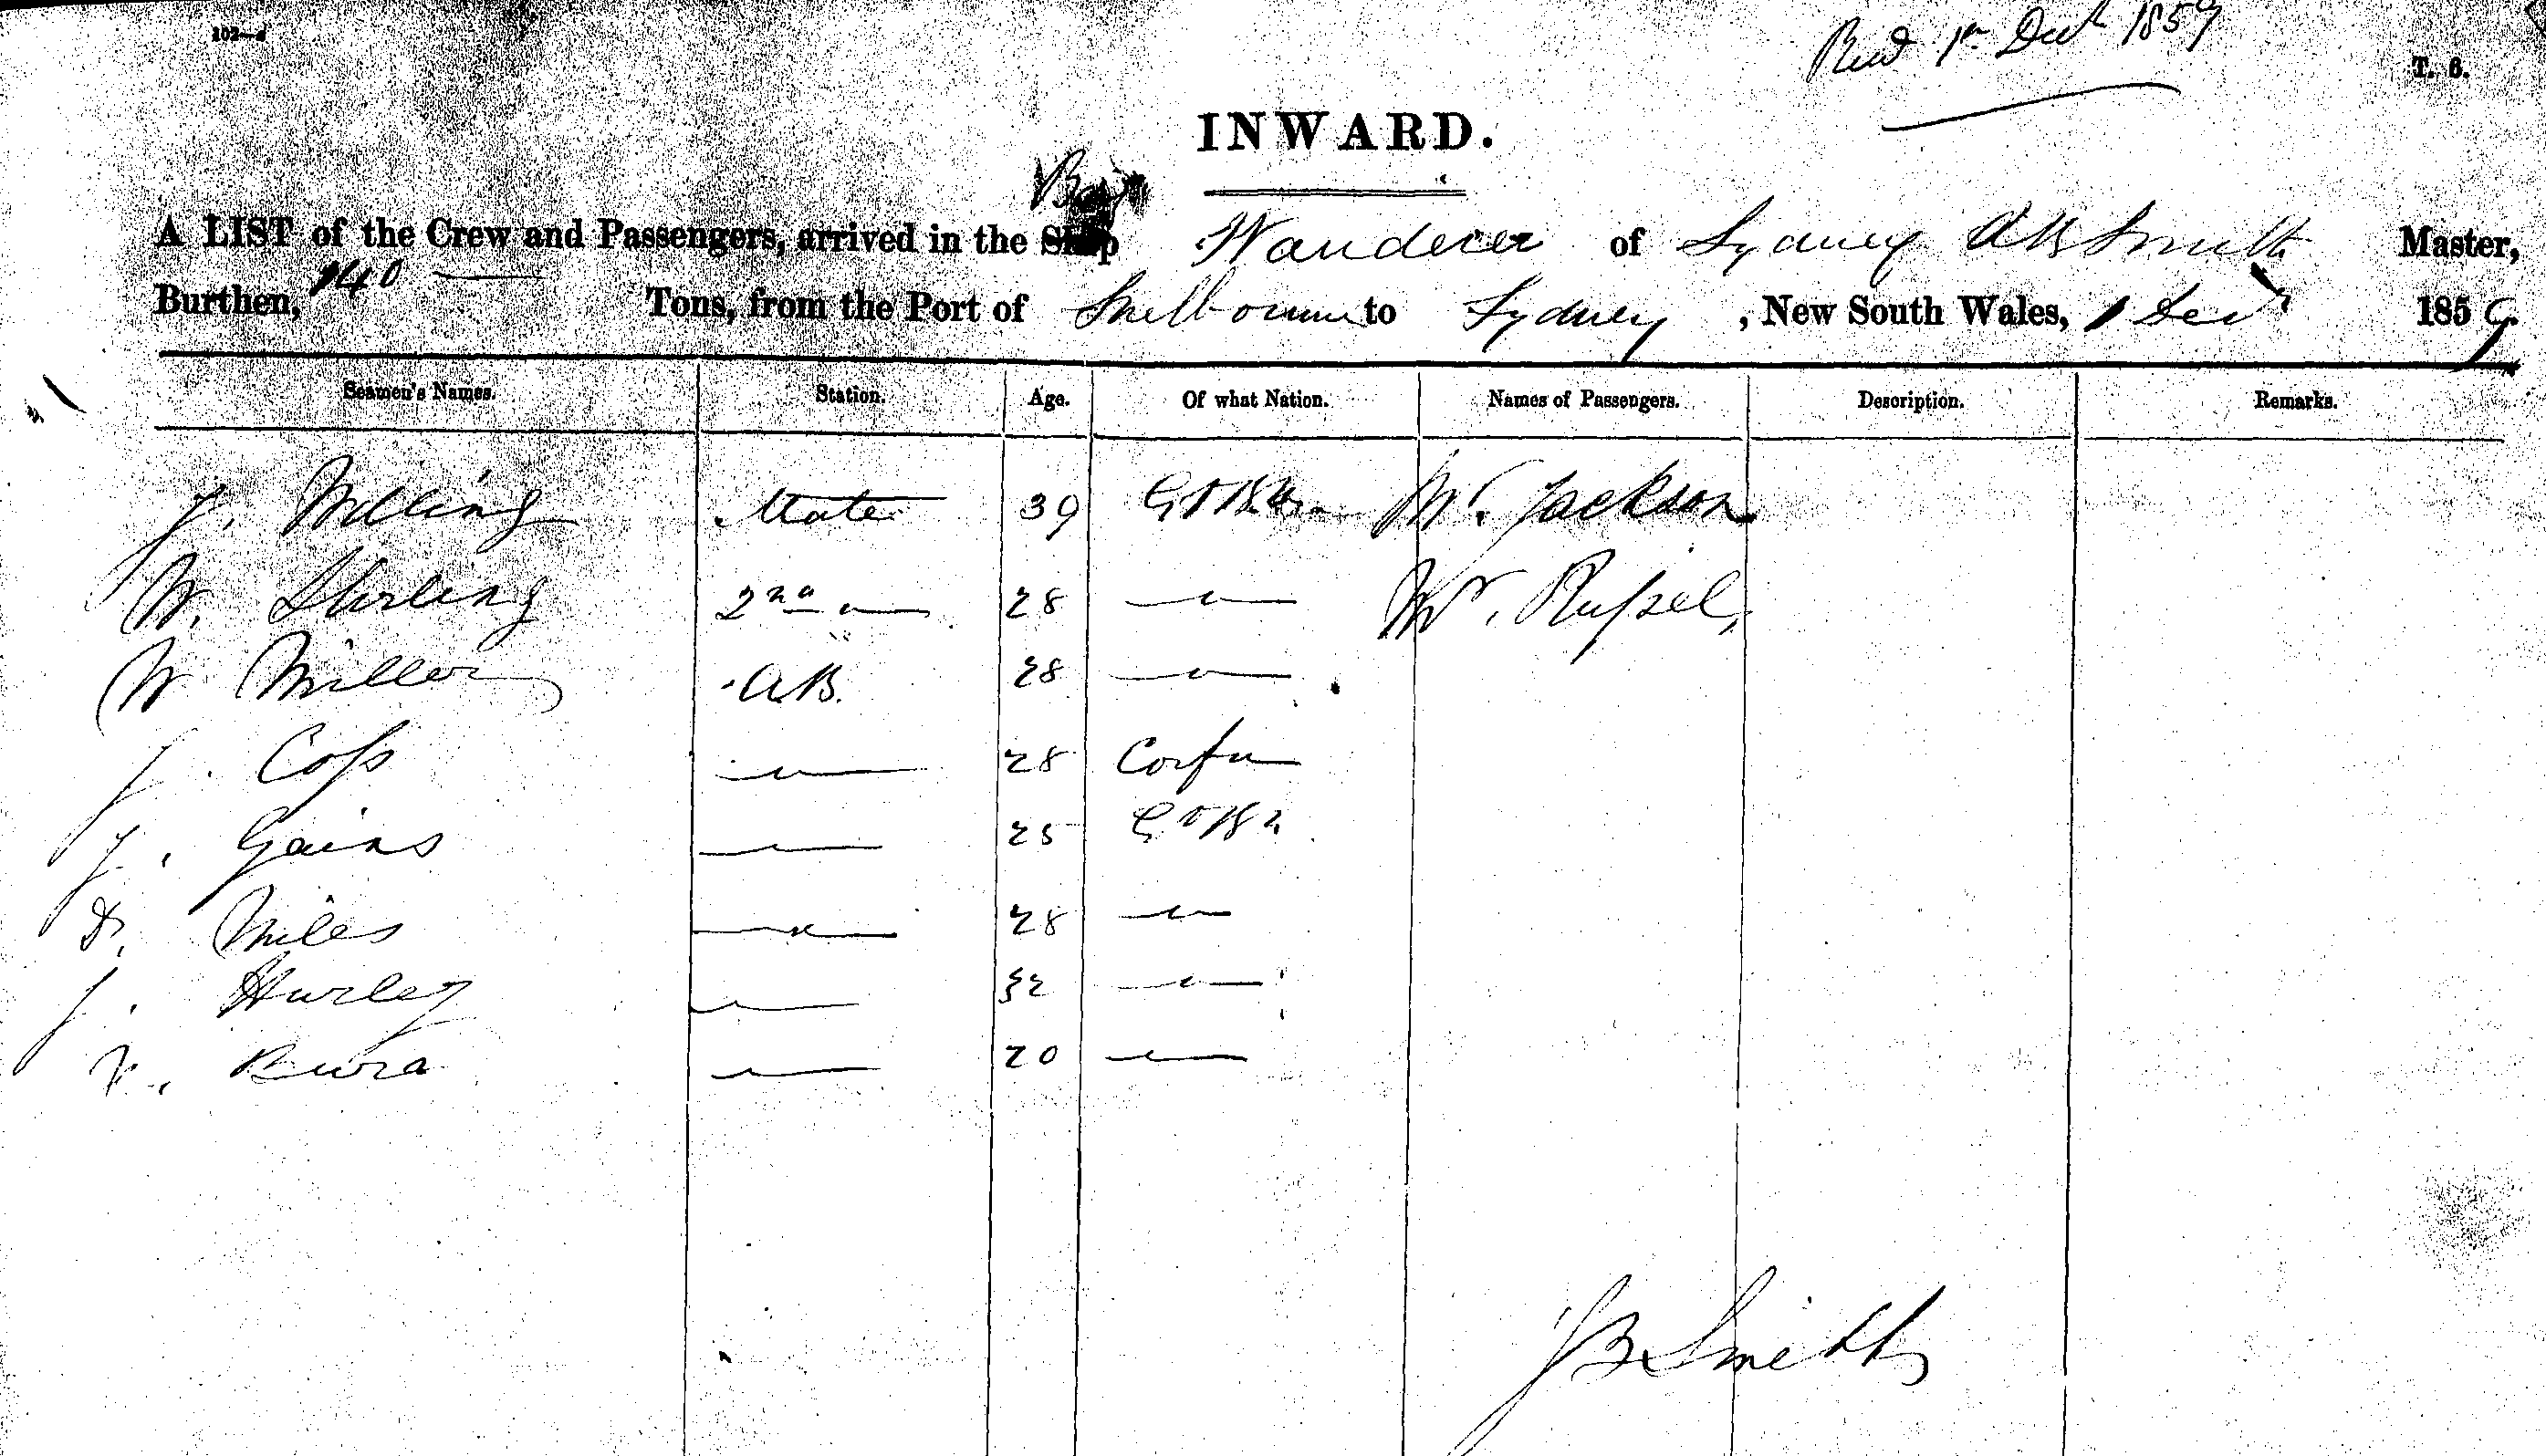 102—d
Recd 1st Decr 1859
T. 6.
INWARD.
Brig
A LIST of the Crew and Passengers, arrived in the Ship Wanderer of Sydney Smith Master,
Burthen, 140 Tons, from the Port of Melbourne to Sydney, New South Wales, 1 Decr 1859
Seamen's Names. Station. Age. Of what Nation. Names of Passengers. Description. Remarks.
J. Milling Mate 39 Gt Mr. Jackson
W. Stirling 2nd — " — 28 — " — Mr. Russel
W Miller A.B. 28 — " —
J. Coss — " — 28 Corfu
J. Gains — " — 25 Gt Bn
D. Miles — " — 28 — " —
J. Hurley — " — 32 — " —
— " — 20 — " —
JB Smith